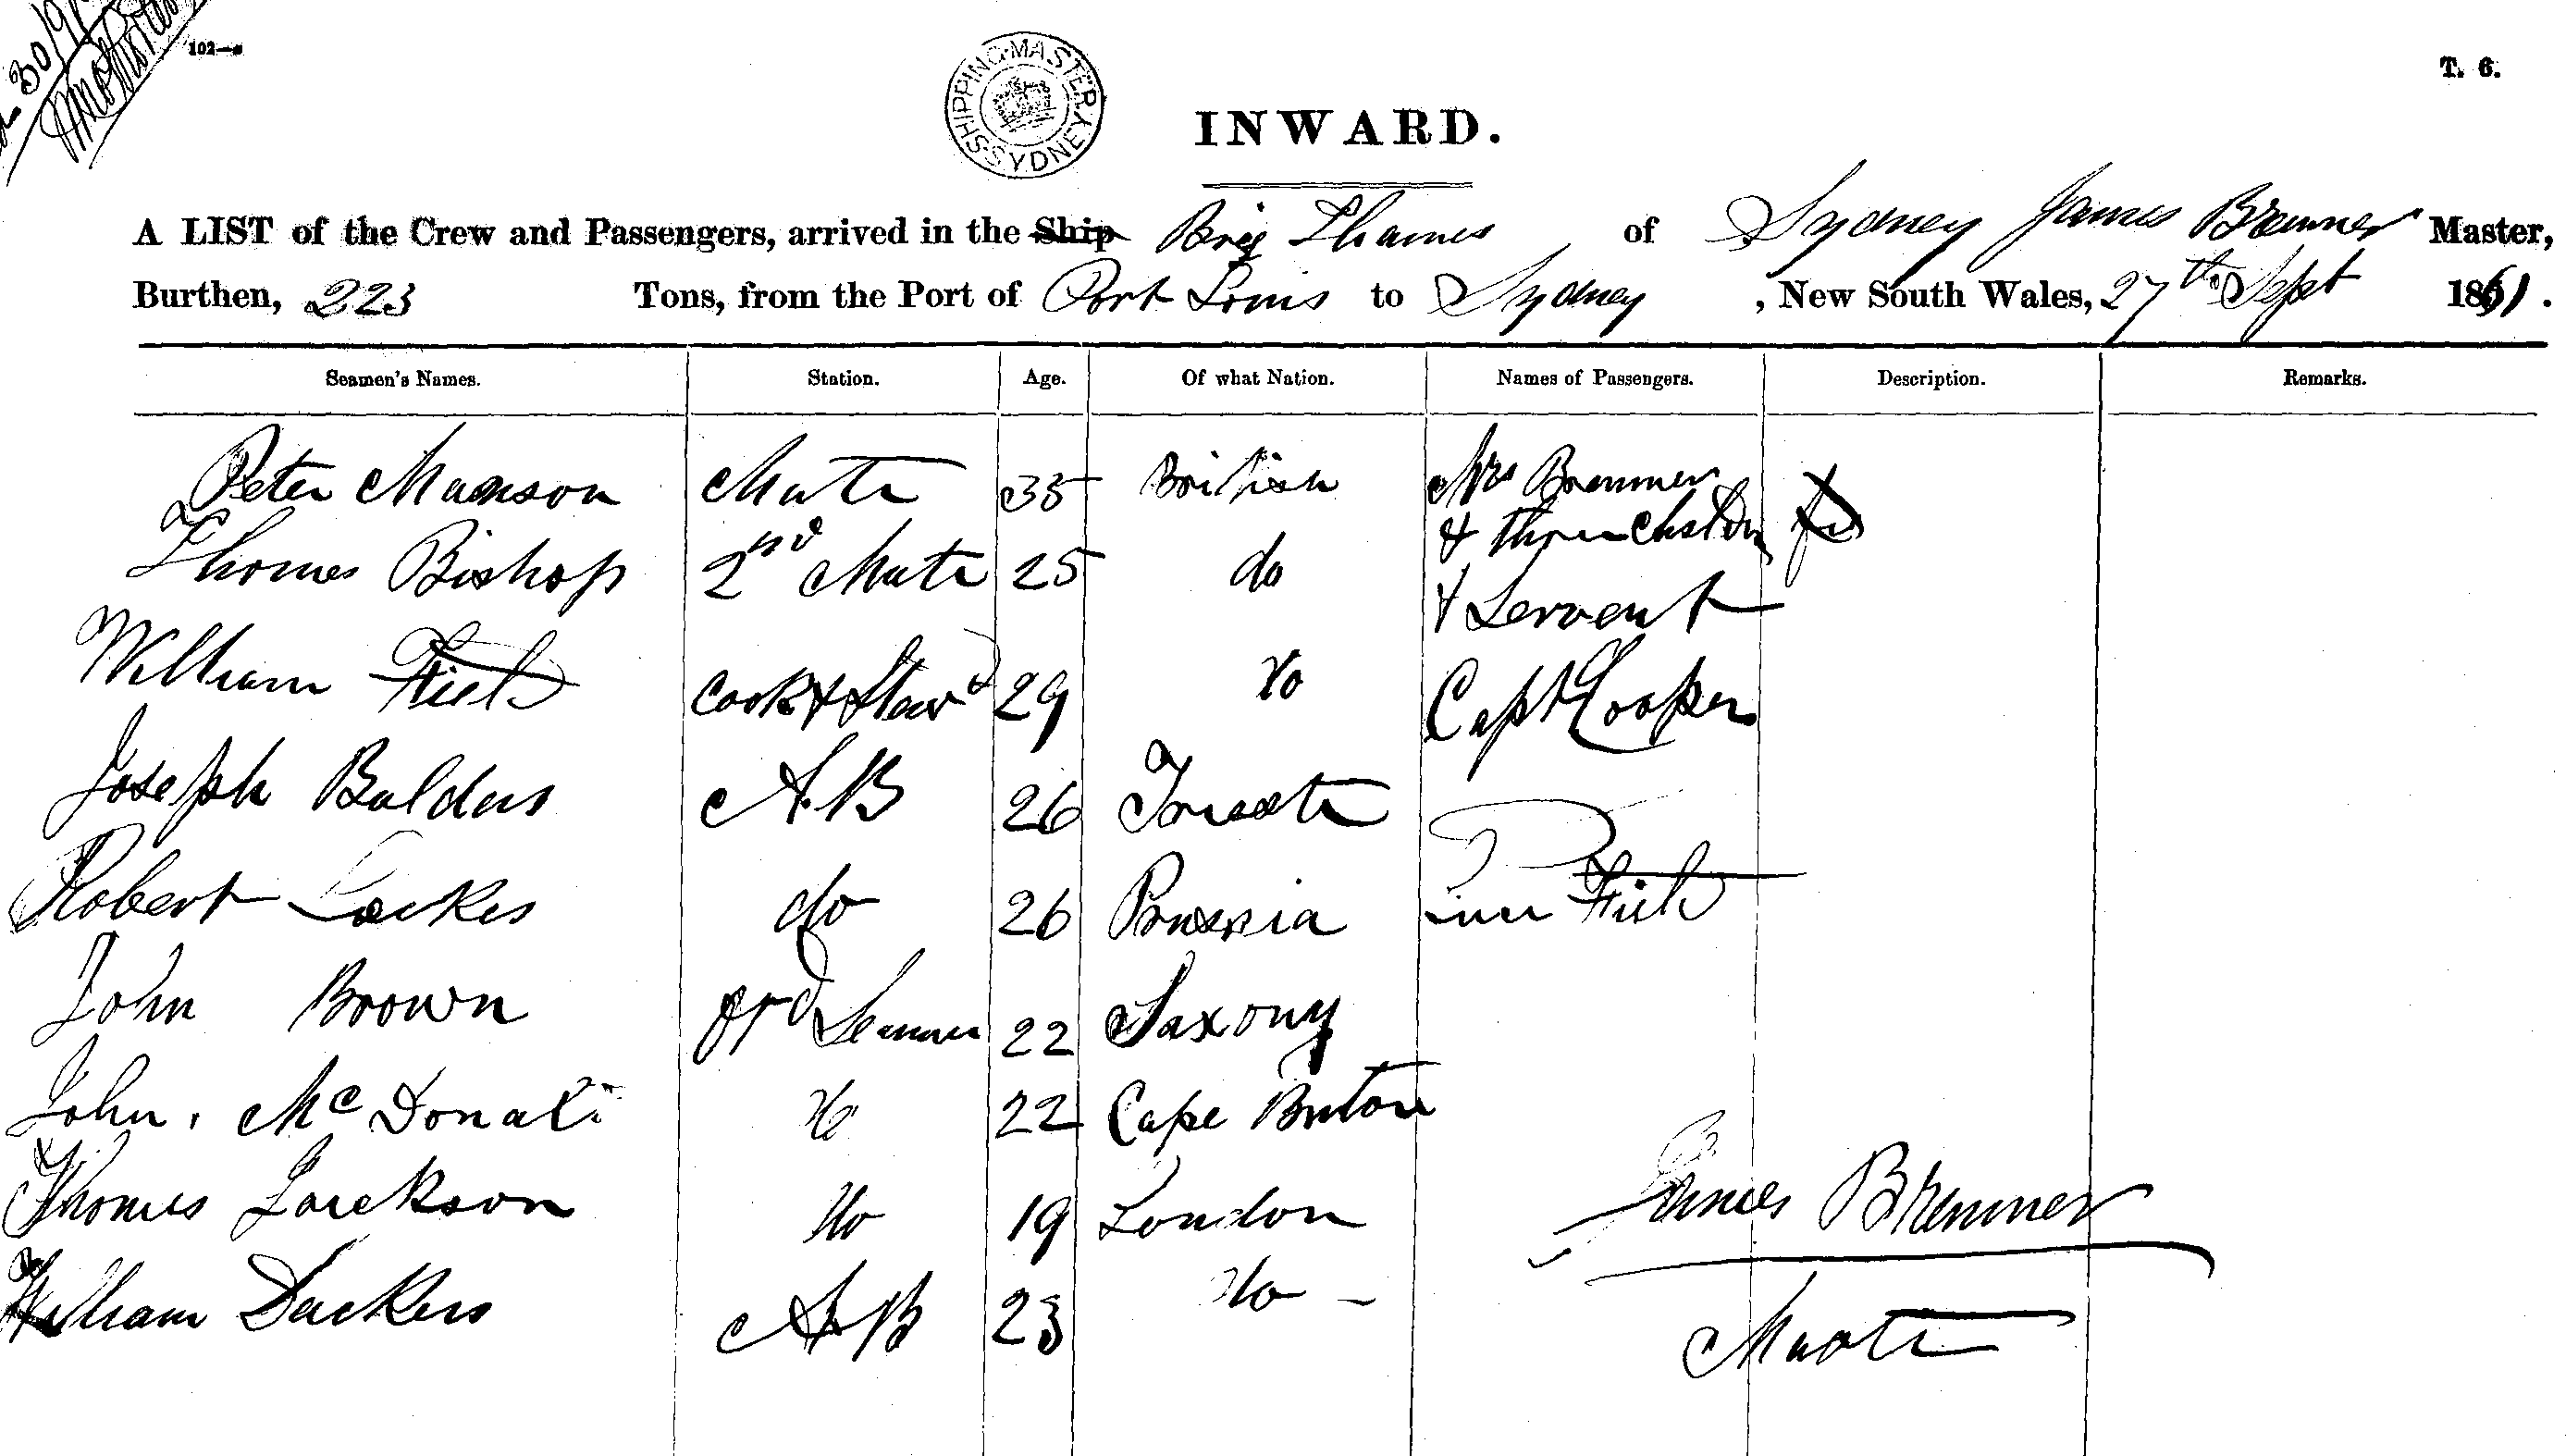 102—
SHIPPING MASTER SYDNEY
T. 6.
INWARD.
A LIST of the Crew and Passengers, arrived in the Ship Brig Thames of Sydney James Bremner Master,
Burthen, 223 Tons, from the Port of Port Louis to Sydney, New South Wales, 27th Sept 1861.
Seamen's Names. Station. Age. Of what Nation. Names of Passengers. Description. Remarks.
Peter Manson Mate 35 British Mrs Bremner
& three
Thomas Bishop 2nd Mate 25 do & Servent
William Field Cook & Stewd 29 do Capt Cooper
Joseph Balders A.B 26 Trieste
Robert Lackes do 26 Prussia Field
John Brown Ord Seaman 22 Saxony
John McDonald do 22 Cape Briton
Thomas Jackson do 19 London James Bremner
William Dackers A.B 23 do —
Master